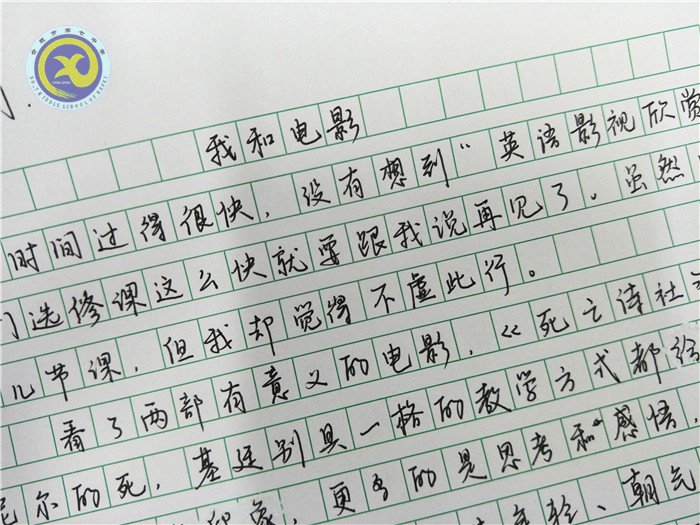 合肥市第七中学
NO.7 MIDDLE SCHOOL OF HEFEI
我和电影
时间过得很快，没有想到“英语影视欣赏
门选修课这么快就要跟我说再见了。虽然
几节课，但我却觉得不虚此行。
看了两部有意义的电影，《死亡诗社
尼尔的死，基廷别具一格的教学方式都给
印象，更多的是思考和感悟，
年轻、朝气